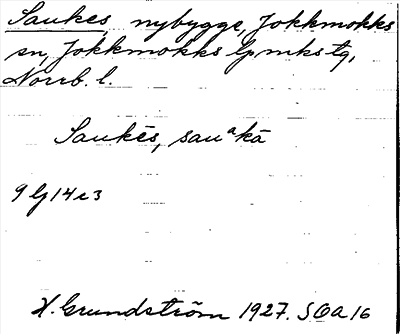 Saukes, nybygge, Jokkmokks
sn, Jokkmokks lpmkstg,
Norrb. l.
Saukēs, sauᵃkā
9 lg 14 c 3
H. Grundström 1927. SOA 16